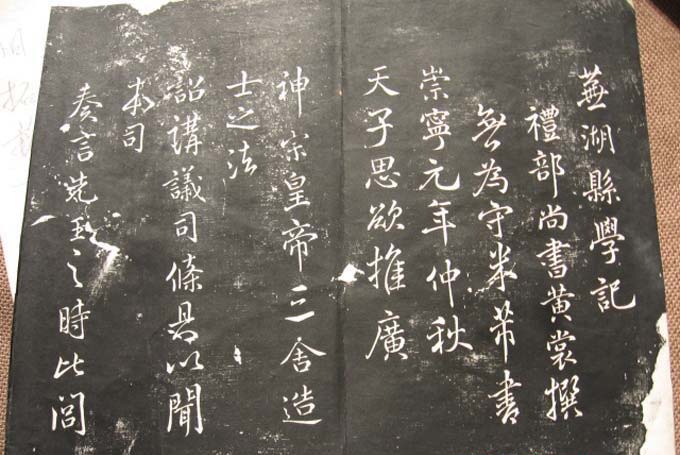 蕪湖縣學記
禮部尚書黃裳撰
無為守米芾書
崇寧元年仲秋
天子思欲推廣
神宗皇帝三舍造
士之法
詔講議司條具以聞
本司
奏言先王之時比閭